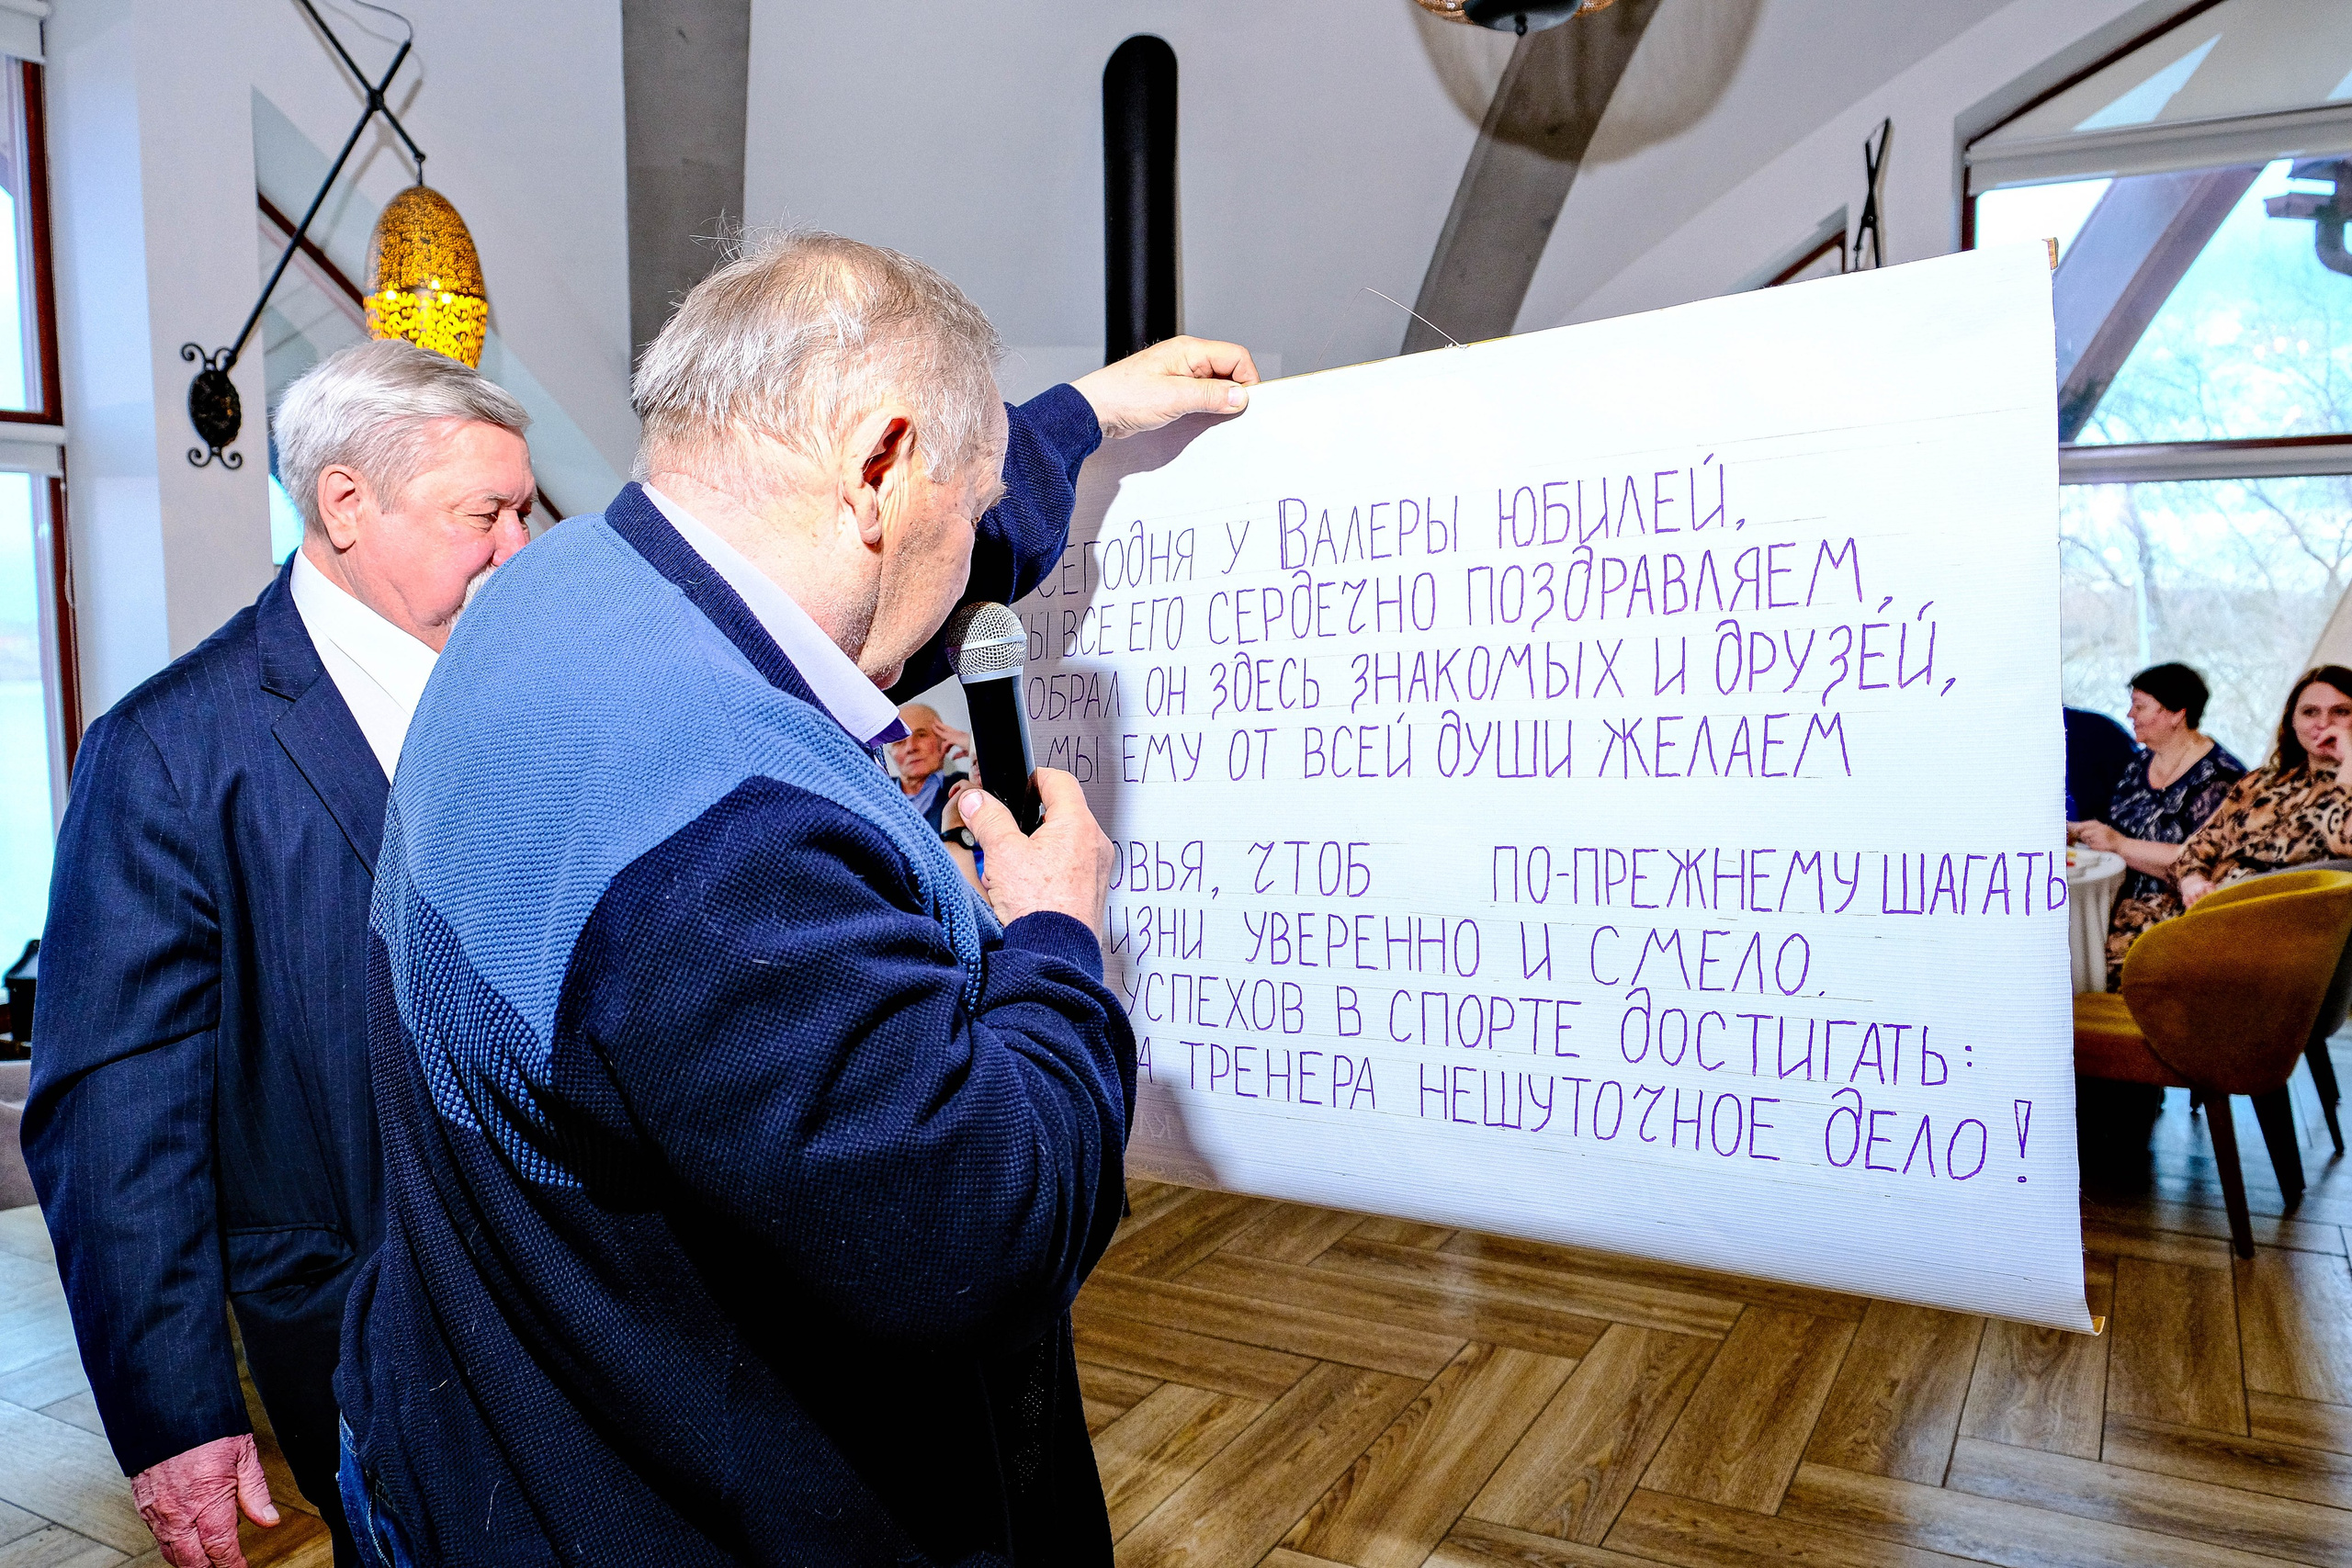 СЕГОДНЯ У ВАЛЕРЫ ЮБИЛЕЙ,
ВСЕ ЕГО СЕРДЕЧНО ПОЗДРАВЛЯЕМ,
ОБРАЛ ОН ЗДЕСЬ ЗНАКОМЫХ И ДРУЗЕЙ,
МЫ ЕМУ ОТ ВСЕЙ ДУШИ ЖЕЛАЕМ
ОВЬЯ, ЧТОБ ПО-ПРЕЖНЕМУ ШАГАТЬ
ИЗНИ УВЕРЕННО И СМЕЛО.
УСПЕХОВ В СПОРТЕ ДОСТИГАТЬ:
А ТРЕНЕРА НЕШУТОЧНОЕ ДЕЛО!